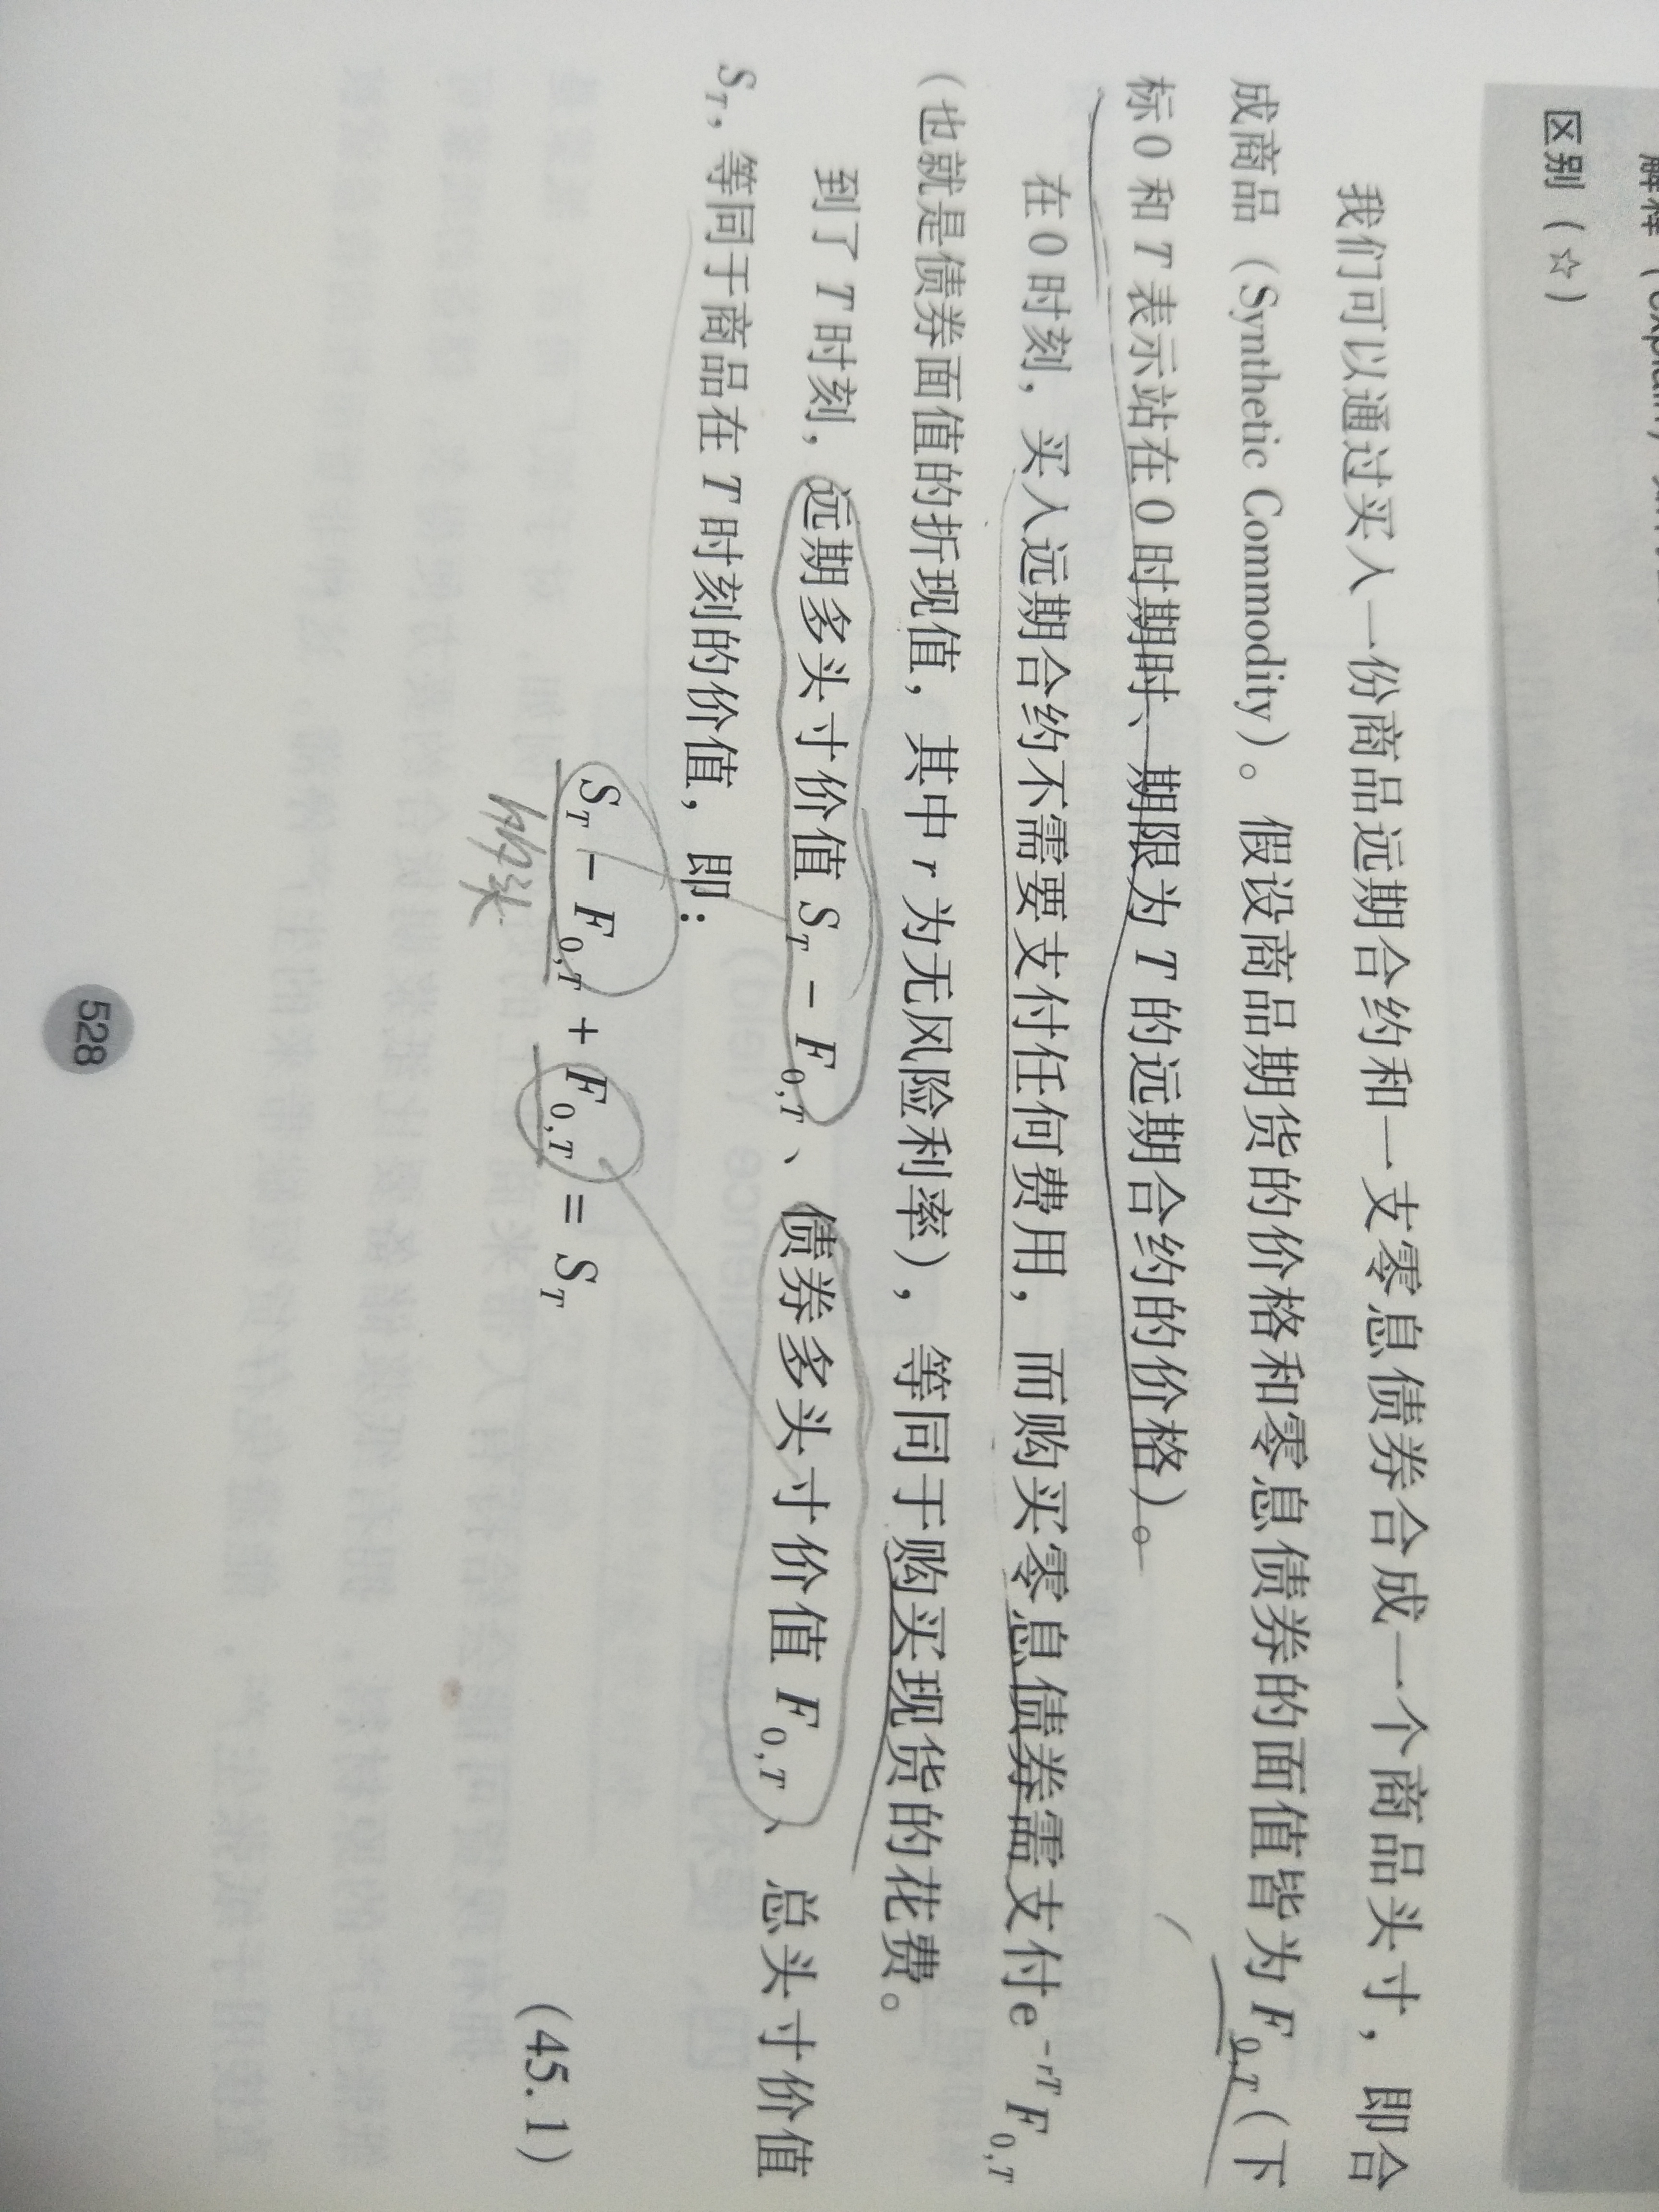 解释（explain）
区别（☆）
我们可以通过买入一份商品远期合约和一支零息债券合成一个商品头寸，即合
成商品（Synthetic Commodity）。假设商品期货的价格和零息债券的面值皆为 F0,T（下
标 0 和 T 表示站在 0 时期时、期限为 T 的远期合约的价格）。
在 0 时刻，买入远期合约不需要支付任何费用，而购买零息债券需支付 e^-rT F0,T
（也就是债券面值的折现值，其中 r 为无风险利率），等同于购买现货的花费。
到了 T 时刻，远期多头寸价值 ST − F0,T、债券多头寸价值 F0,T、总头寸价值
ST，等同于商品在 T 时刻的价值，即：
ST − F0,T + F0,T = ST （45.1）
528